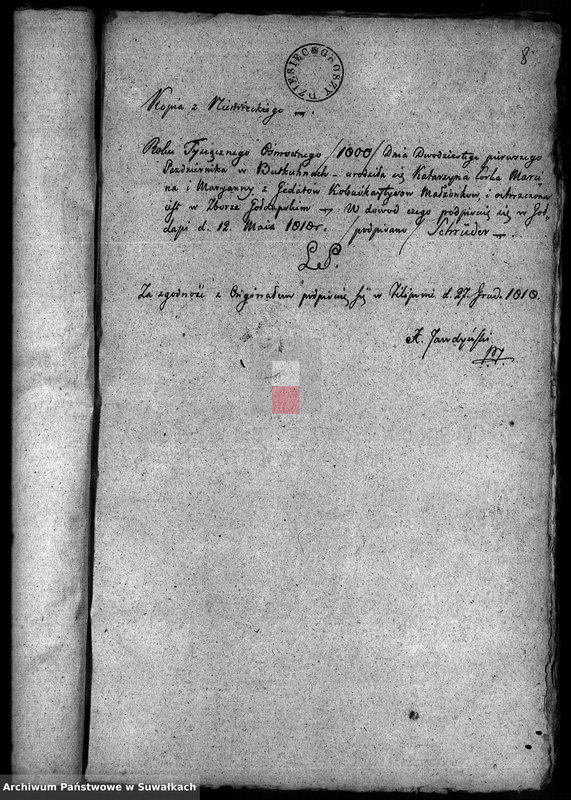 8
DZIESIĘC GROSZY
Kopia z Niemieckiego
Roku Tysiącznego Osmsetnego /1800/ Dnia Dwudziestego pierwszego
Pazdziernika w Butkuhnach – urodziła się Katarzyna Corka Marci
na i Maryanny z Gedatów Małzonków, i ochrzczona
iest w Zborze Gołdapskim – W dowod czego podpisuię się w Goł„
dapi d. 12. Maia 1818 r. /podpisano/ Schrüder –.
L.S.
Za zgodność z Originałem podpisuię się w Filipowie d. 27. Grud. 1818.
A. Jawdyński
Archiwum Państwowe w Suwałkach